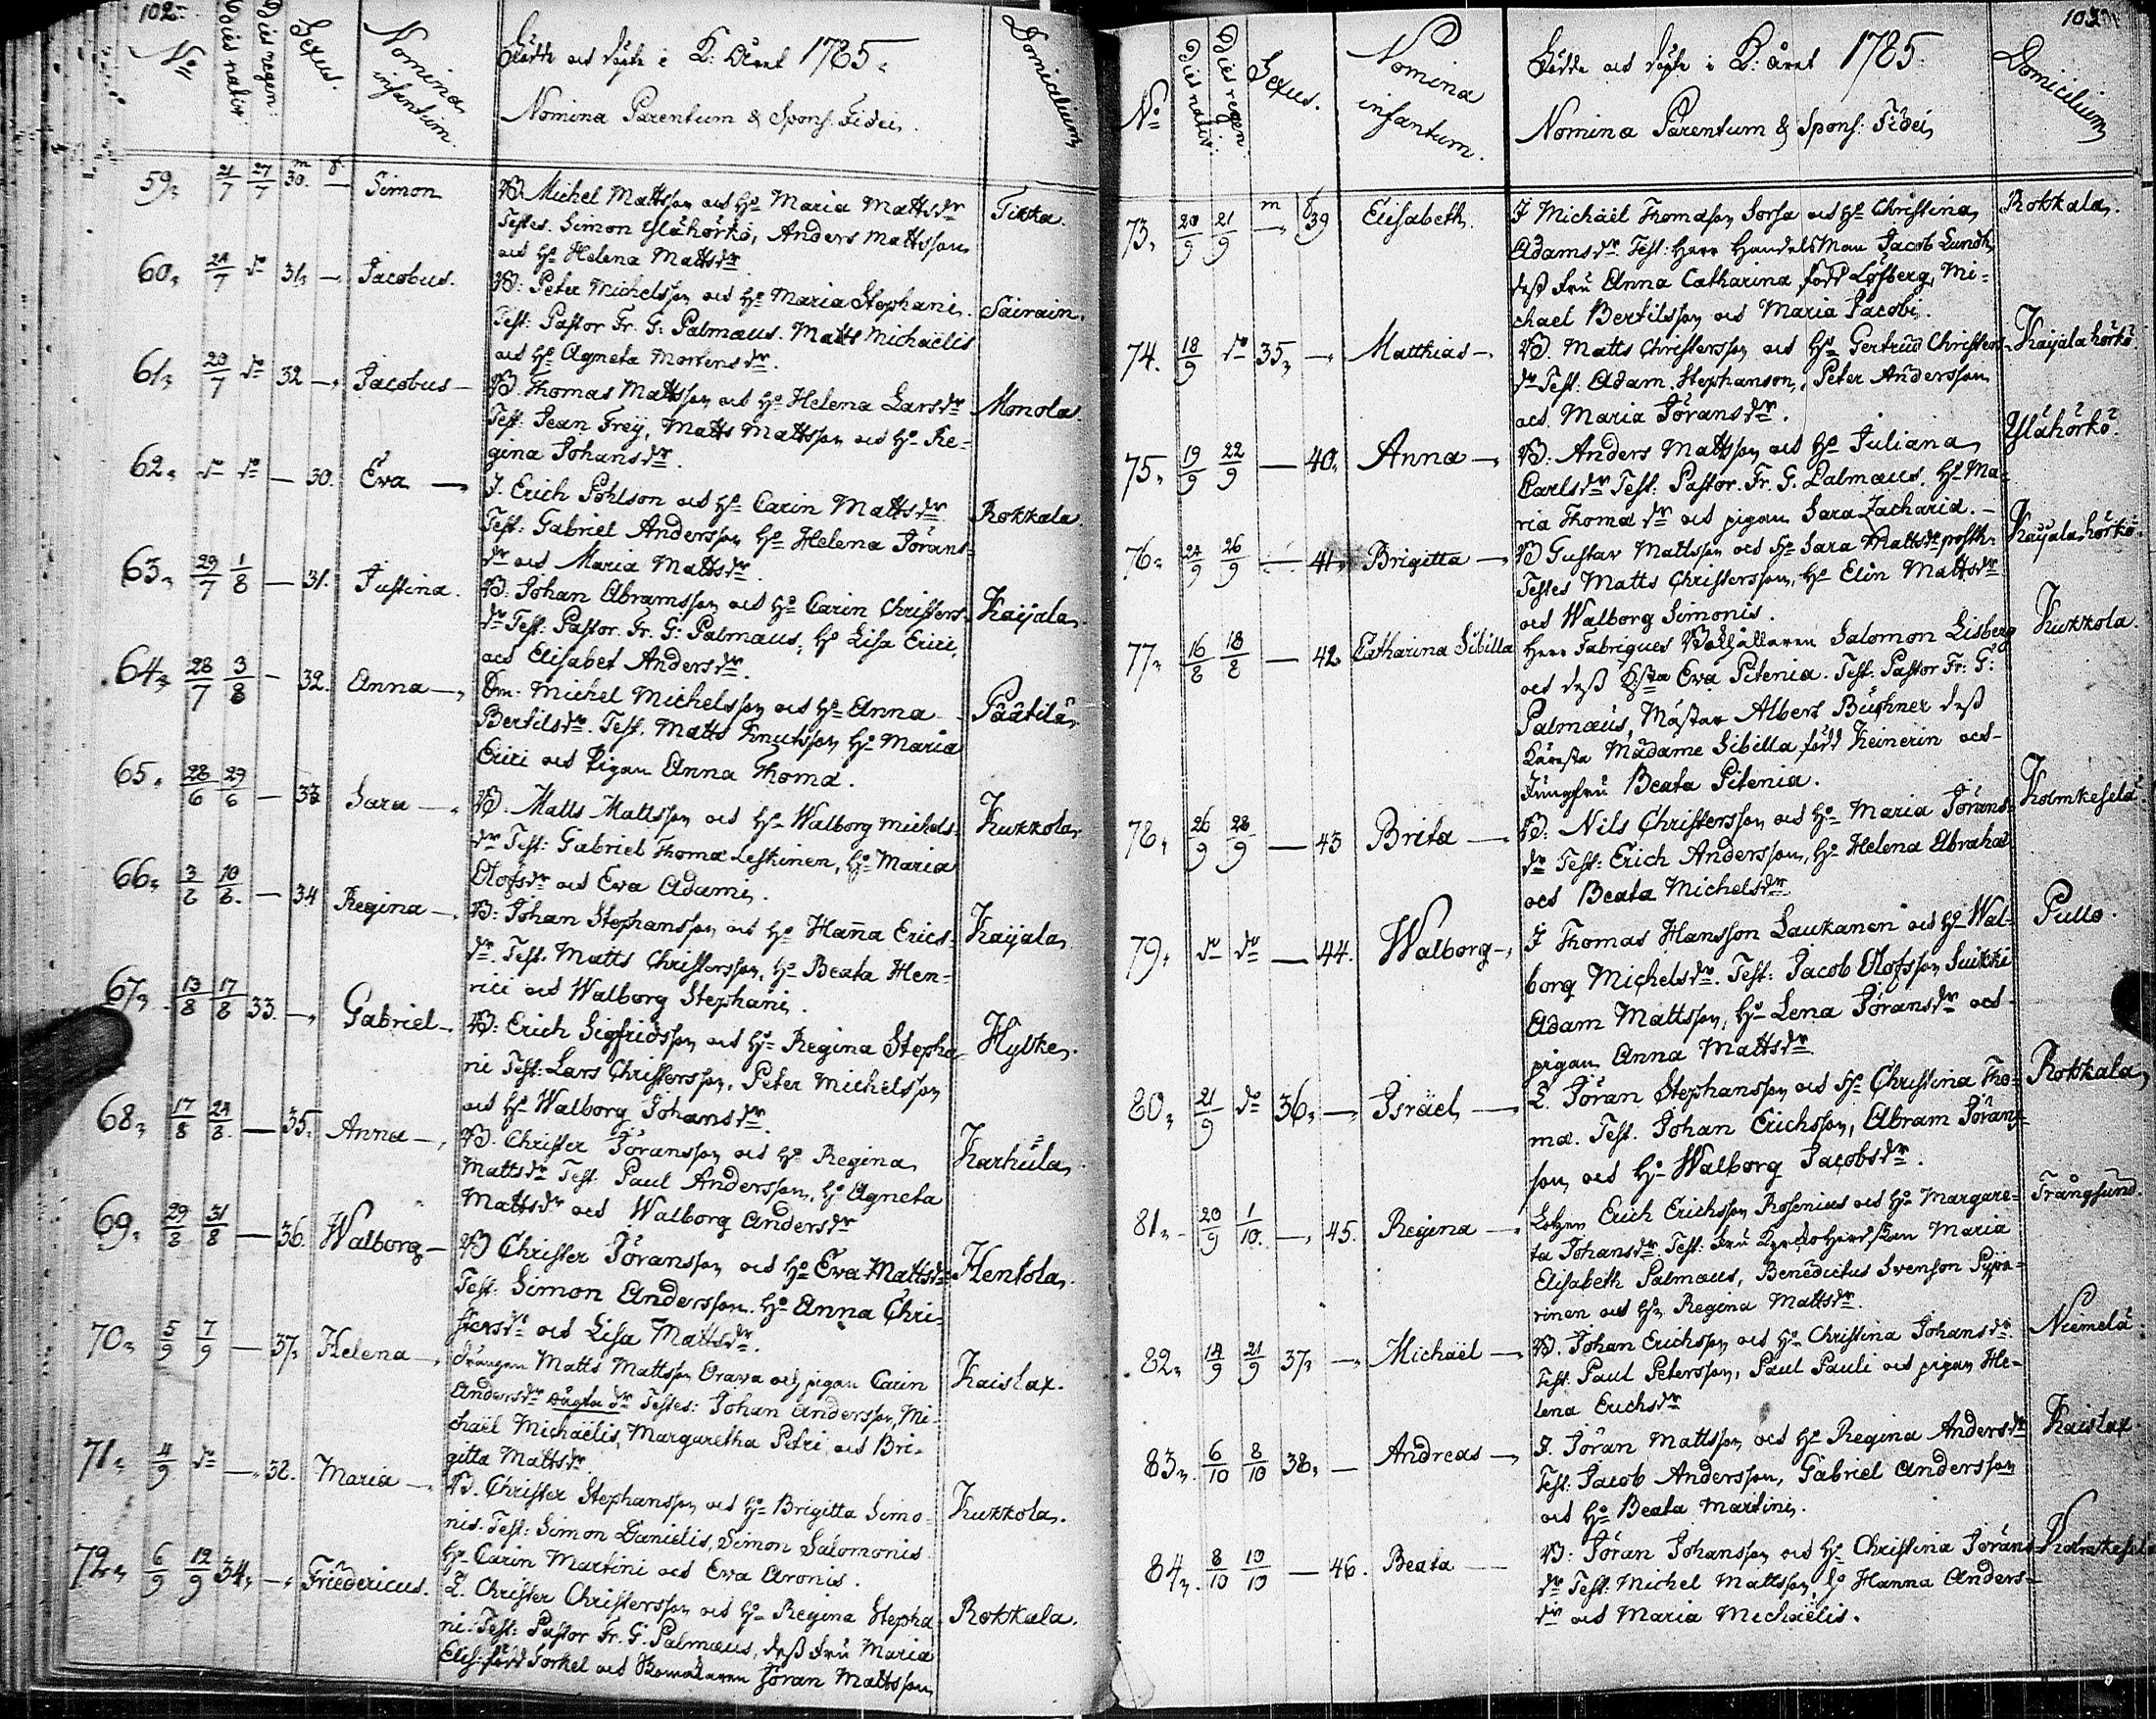 102.
No Dies nativ: Dies regen: Sexus. Nomina infantium. Födde och döpte i K: Året 1785. Domicilium
Nomina Parentum & Spons. Fidei.
m f
59, 21/7 27/7 30. — Simon B. Michel Mattsson och Ho Maria Mattsdr Tikka.
Testes. Simon Ylähörkö, Anders Mattsson
och Ho Helena Mattsdr
60, 24/7 do 31, — Jacobus. B: Peter Michelsson och Ho Maria Stephani. Säirain.
Test: Pastor Fr. G: Palmæus. Matts Michaëlis
och Ho Agneta Mortensdr.
61, 20/7 do 32 — Jacobus — B. Thomas Mattsson och Ho Helena Larsdr Monola.
Test: Jean Frey, Matts Mattsson och Ho Re-
gina Johansdr.
62, do do — 30. Eva — I. Erich Pohlson och Ho Carin Mattsdr Rokkala.
Test: Gabriel Andersson Ho Helena Jörans-
dr och Maria Mattsdr.
63, 29/7 1/8 — 31. Justina. B: Johan Abramsson och Ho Carin Christers- Kaijala.
dr Test: Pastor. Fr. G: Palmæus, Ho Lisa Erici,
och Elisabet Andersdr.
64, 28/7 3/8 — 32. Anna — Michel Michelsson och Ho Anna Päätilä.
Bertilsdr. Test. Matts Knutsson Ho Maria
Erici och Pigan Anna Thomæ.
65. 28/6 29/6 — 33 Sara — B. Matts Mattsson och Ho Walborg Michels- Kukkola.
dr Test: Gabriel Thomæ Leskinen, Ho Maria
Olofsdr och Eva Adami.
66, 3/8 10/8. — 34 Regina — B: Johan Stephansson och Ho Hanna Erics- Kaijala.
dr. Test. Matts Christersson, Ho Beata Hen-
rici och Walborg Stephani.
67, 13/8 17/8 33. — Gabriel — B: Erich Sigfridsson och Ho Regina Stepha- Hylke.
ni Test: Lars Christersson, Peter Michelsson
och Ho Walborg Johansdr.
68, 17/8 24/8. — 35. Anna — B. Christer Jöransson och Ho Regina Karhula.
Mattsdr Test Paul Andersson, Ho Agneta
Mattsdr och Walborg Andersdr
69, 29/8 31/8 — 36. Walborg — B Christer Jöransson och Ho Eva Mattsdr Hentola.
Test: Simon Andersson. Ho Anna Chri-
stersdr och Lisa Mattsdr.
70, 5/9 7/9 — 37, Helena — Drängen Matts Mattsson Orava och pigan Carin Kaislax.
Andersdr dr Testes: Johan Andersson, Mi-
chaël Michaëlis, Margaretha Petri och Bri-
gitta Mattsdr
71, 4/9 do — 38. Maria — B. Christer Stephansson och Ho Brigitta Simo- Kukkola.
nis. Test: Simon Danielis, Simon Salomonis
Ho Carin Martini och Eva Aronis.
72, 6/9 12/9 34, — Friedericus. L. Christer Christersson och Ho Regina Stepha- Rokkala.
ni. Test: Pastor Fr. G. Palmæus, dess Fru Maria
Elis: född Forkel och Jöran Mattsson
103
No Dies nativ: Dies regen. Sexus. Nomina infantum. Födde och döpte i K: året 1785. Domicilium
Nomina Parentum & Spons: Fidei
m f
73, 20/9 21/9 — 39 Elisabeth. I Michaël Thomasson Sorsa och Ho Christina Rokkala.
Adamsdr Test: Herr HandelsMan Jacob Lundh,
dess Fru Anna Catharina född Löfberg, Mi-
chael Bertilsson och Maria Jacobi.
74. 18/9 do 35, — Matthias — B. Matts Christersson och Ho Gertrud Christers- Kaijalahörkö
dr Test: Adam Stephanson, Peter Andersson
och Maria Göransdr.
75, 19/9 22/9 — 40. Anna — B: Anders Mattsson och Ho Juliana Ylähörkö.
Carlsdr Test: Pastor. Fr. G. Palmæus. Ho Ma-
ria Thomæ dr och pigan Sara Zachariæ. —
76, 24/9 26/9 — 41, Brigitta — B Gustav Mattsson och Ho Sara Mattsdr posth. Kaijalahörkö.
Testes Matts Christersson, Ho Elin Mattsdr
och Walborg Simonis.
77, 16/8 18/8 — 42. Catharina Sibilla Herr Fabriques Salomon Lisberg Kukkola.
och dess Eva Pitenia. Test: Pastor Fr: G:
Palmæus, Mästar Albert Büchner dess
Käresta Madame Sibilla född Keinerin och
Jungfru Beata Pitenia.
78, 26/9 28/9 — 43 Brita — B: Nils Christersson och Ho Maria Jörans- Kolmkeselä
dr Test: Erich Andersson, Ho Helena Abrahæ
och Beata Michelsdr
79, do do — 44. Walborg — I Thomas Hansson Laukanen och Ho Wal- Pullo.
borg Michelsdr. Test: Jacob Olofsson Suikki
Adam Mattsson, Ho Lena Jöransdr och
pigan Anna Mattsdr.
80, 21/9 do 36, — Israël, — L. Jöran Stephansson och Ho Christina Tho- Rokkala,
mæ. Test. Johan Erichsson, Abram Jörans-
son och Ho Walborg Jacobsdr.
81, 20/9 1/10. — 45. Regina — Lotzen Erich Erichsson Rosenius och Ho Margare- Trångsund.
ta Johansdr. Test: Fru Maria
Elisabeth Palmæus, Benedictus Svenson
rinen och Ho Regina Mattsdr.
82, 14/9 21/9 37, — Michaël — B. Johan Erichsson och Ho Christina Johansdr Niemelä
Test. Paul Petersson, Paul Pauli och pigan He-
lena Erichsdr
83. 6/10 8/10 38, — Andreas — I. Jöran Mattsson och Ho Regina Andersdr Kaislax
Test: Jacob Andersson, Gabriel Andersson
och Ho Beata Martini.
84. 8/10 10/10 — 46. Beata — B: Jöran Johansson och Ho Christina Jörans- Kolmkeselä
dr Test: Michel Mattsson, Ho Hanna Anders-
dr och Maria Michaëlis.